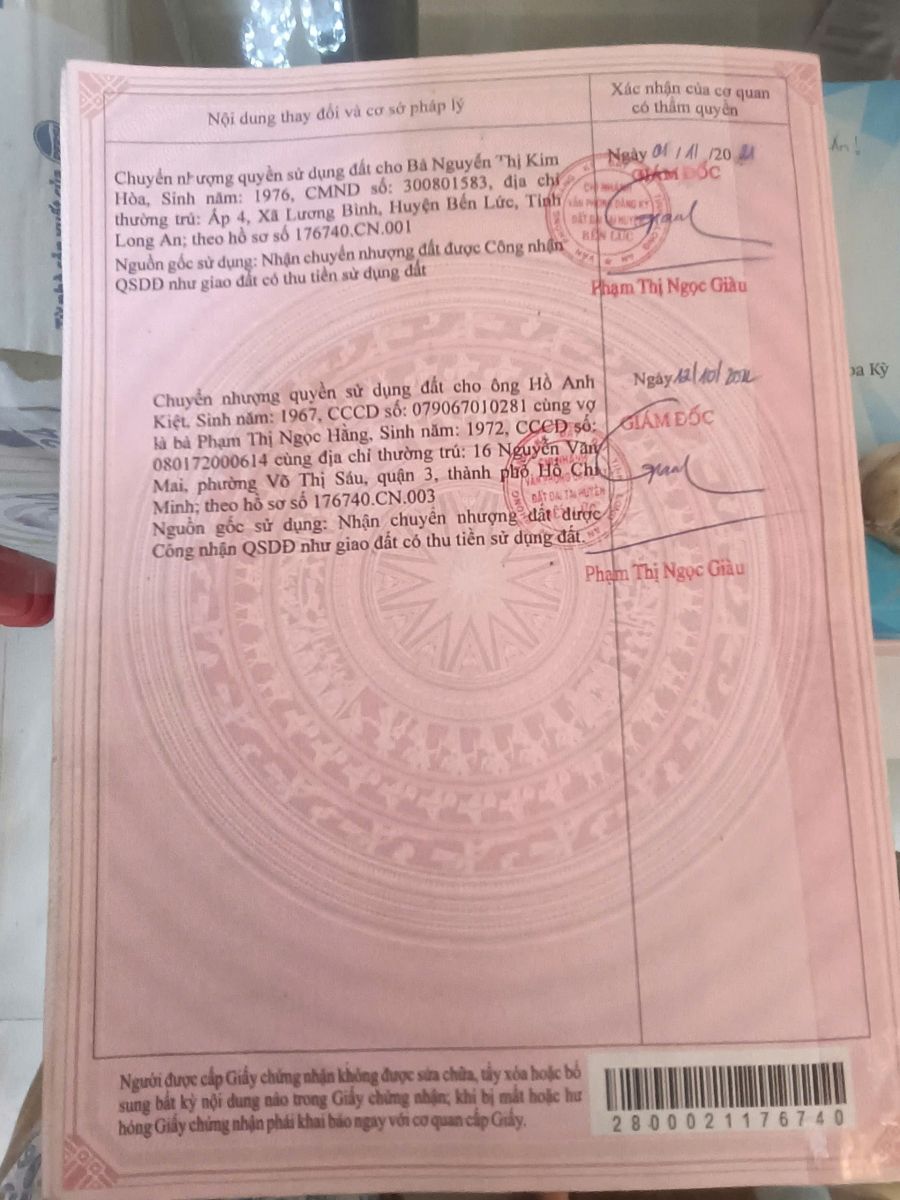 Nội dung thay đổi và cơ sở pháp lý
Xác nhận của cơ quan
có thẩm quyền
Chuyển nhượng quyền sử dụng đất cho Bà Nguyễn Thị Kim
Hòa, Sinh năm: 1976, CMND số: 300801583, địa chỉ
thường trú: Ấp 4, Xã Lương Bình, Huyện Bến Lức, Tỉnh
Long An; theo hồ sơ số 176740.CN.001
Nguồn gốc sử dụng: Nhận chuyển nhượng đất được Công nhận
QSDĐ như giao đất có thu tiền sử dụng đất
Ngày 01/11/2021
GIÁM ĐỐC
CHI NHÁNH
VĂN PHÒNG ĐĂNG KÝ
ĐẤT ĐAI TẠI HUYỆN
BẾN LỨC
Phạm Thị Ngọc Giàu
Chuyển nhượng quyền sử dụng đất cho ông Hồ Anh
Kiệt. Sinh năm: 1967, CCCD số: 079067010281 cùng vợ
là bà Phạm Thị Ngọc Hằng, Sinh năm: 1972, CCCD số:
080172000614 cùng địa chỉ thường trú: 16 Nguyễn Văn
Mai, phường Võ Thị Sáu, quận 3, thành phố Hồ Chí
Minh; theo hồ sơ số 176740.CN.003
Nguồn gốc sử dụng: Nhận chuyển nhượng đất được
Công nhận QSDĐ như giao đất có thu tiền sử dụng đất.
Ngày 12/10/2022
GIÁM ĐỐC
CHI NHÁNH
VĂN PHÒNG
ĐẤT ĐAI TẠI HUYỆN
Phạm Thị Ngọc Giàu
Người được cấp Giấy chứng nhận không được sửa chữa, tẩy xóa hoặc bổ
sung bất kỳ nội dung nào trong Giấy chứng nhận; khi bị mất hoặc hư
hỏng Giấy chứng nhận phải khai báo ngay với cơ quan cấp Giấy.
2800021176740
Kỳ